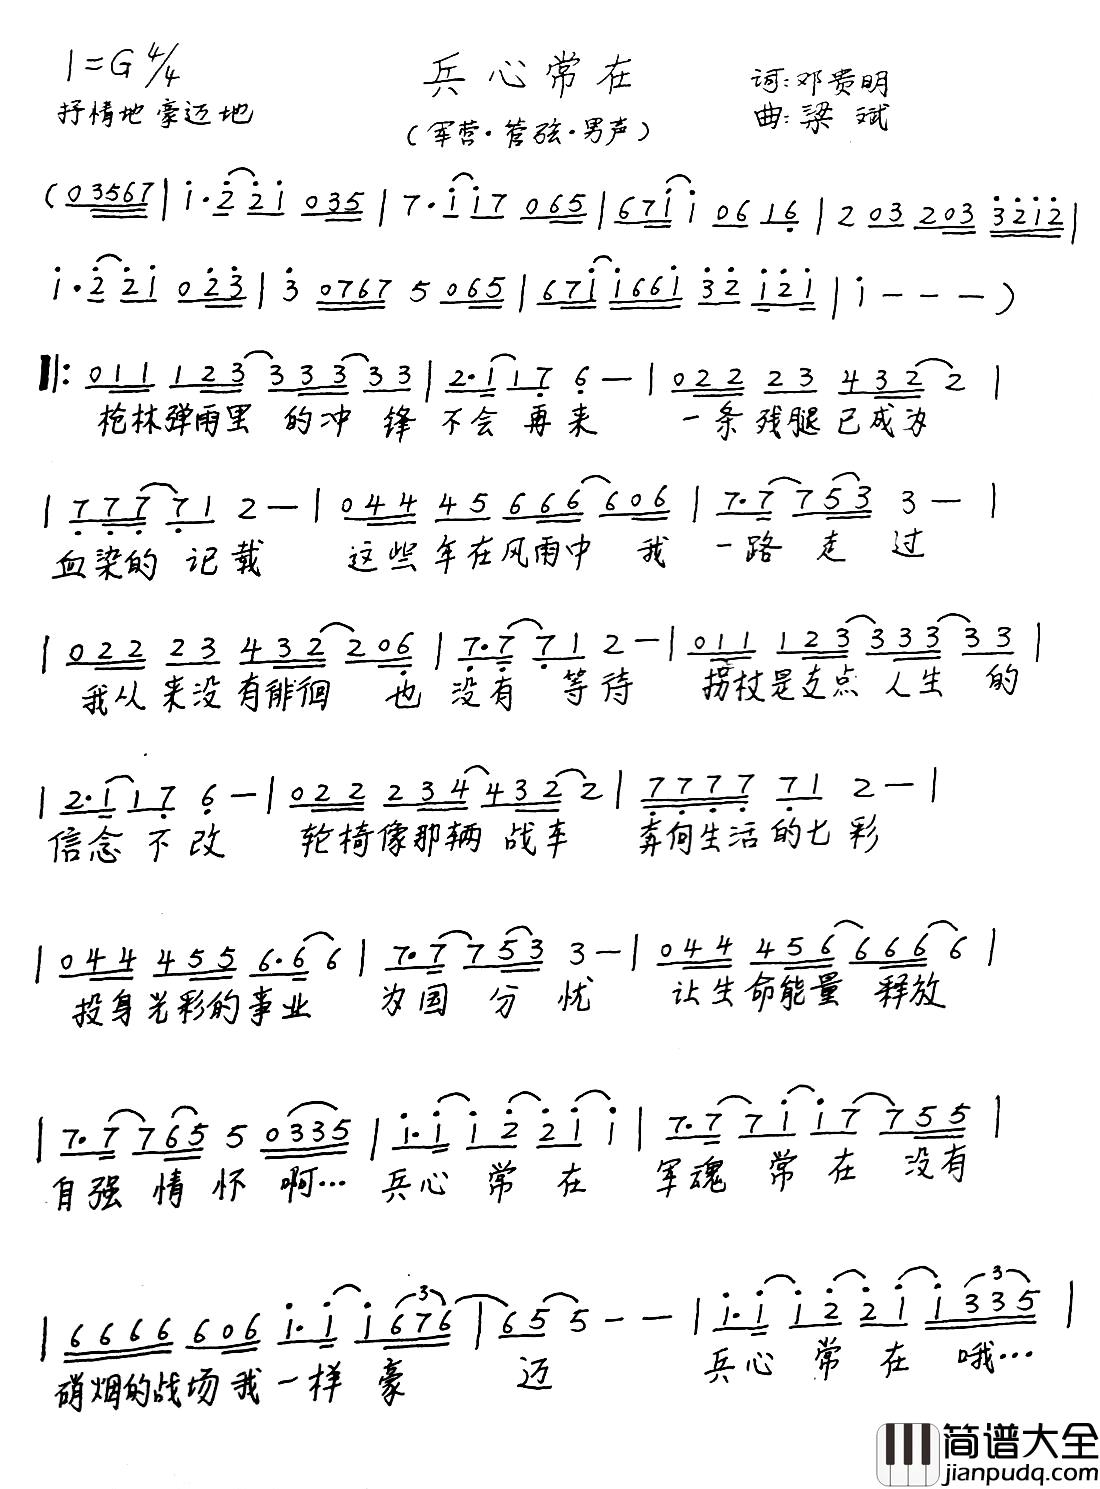 1=G 4/4
兵心常在
词:邓贵明
抒情地 豪迈地
(军营·管弦·男声)
曲:梁斌
(03567|i·22i 035|7·ii7 065|67ii 0616|2 03 203 32i2|
i·22i 023|3 0767 5 065|67ii66i 32 i2i|i---)
‖:011 123 333 33|2·117 6-|022 23 432 2|
枪林弹雨里 的冲 锋 不会 再来 一条残腿已成为
|777 71 2-|044 45 666 606|7·7 753 3-|
血染的 记载 这些年在风雨中 我 一路 走 过
|022 23 432 206|7·7 71 2-|011 123 333 33|
我从来没有徘徊 也 没有 等待 拐杖是支点 人生 的
|2·117 6-|022 234 432 2|7777 71 2-|
信念 不改 轮椅像那辆 战车 奔向生活的七彩
|044 455 6·6 6|7·7 753 3-|044 456 666 6|
投身光彩的事业 为国 分 忧 让生命能量 释放
|7·7 765 5 0335|i·i i2 2i i|7·7 7i i7 755|
自强 情 怀 啊… 兵心 常 在 军魂 常 在 没有
|6666 606 i·i i676|65 5--|i·i i2 2i i335|
硝烟的战场我一样 豪 迈 兵心 常 在 哦…
简谱大全
jianpudq.com